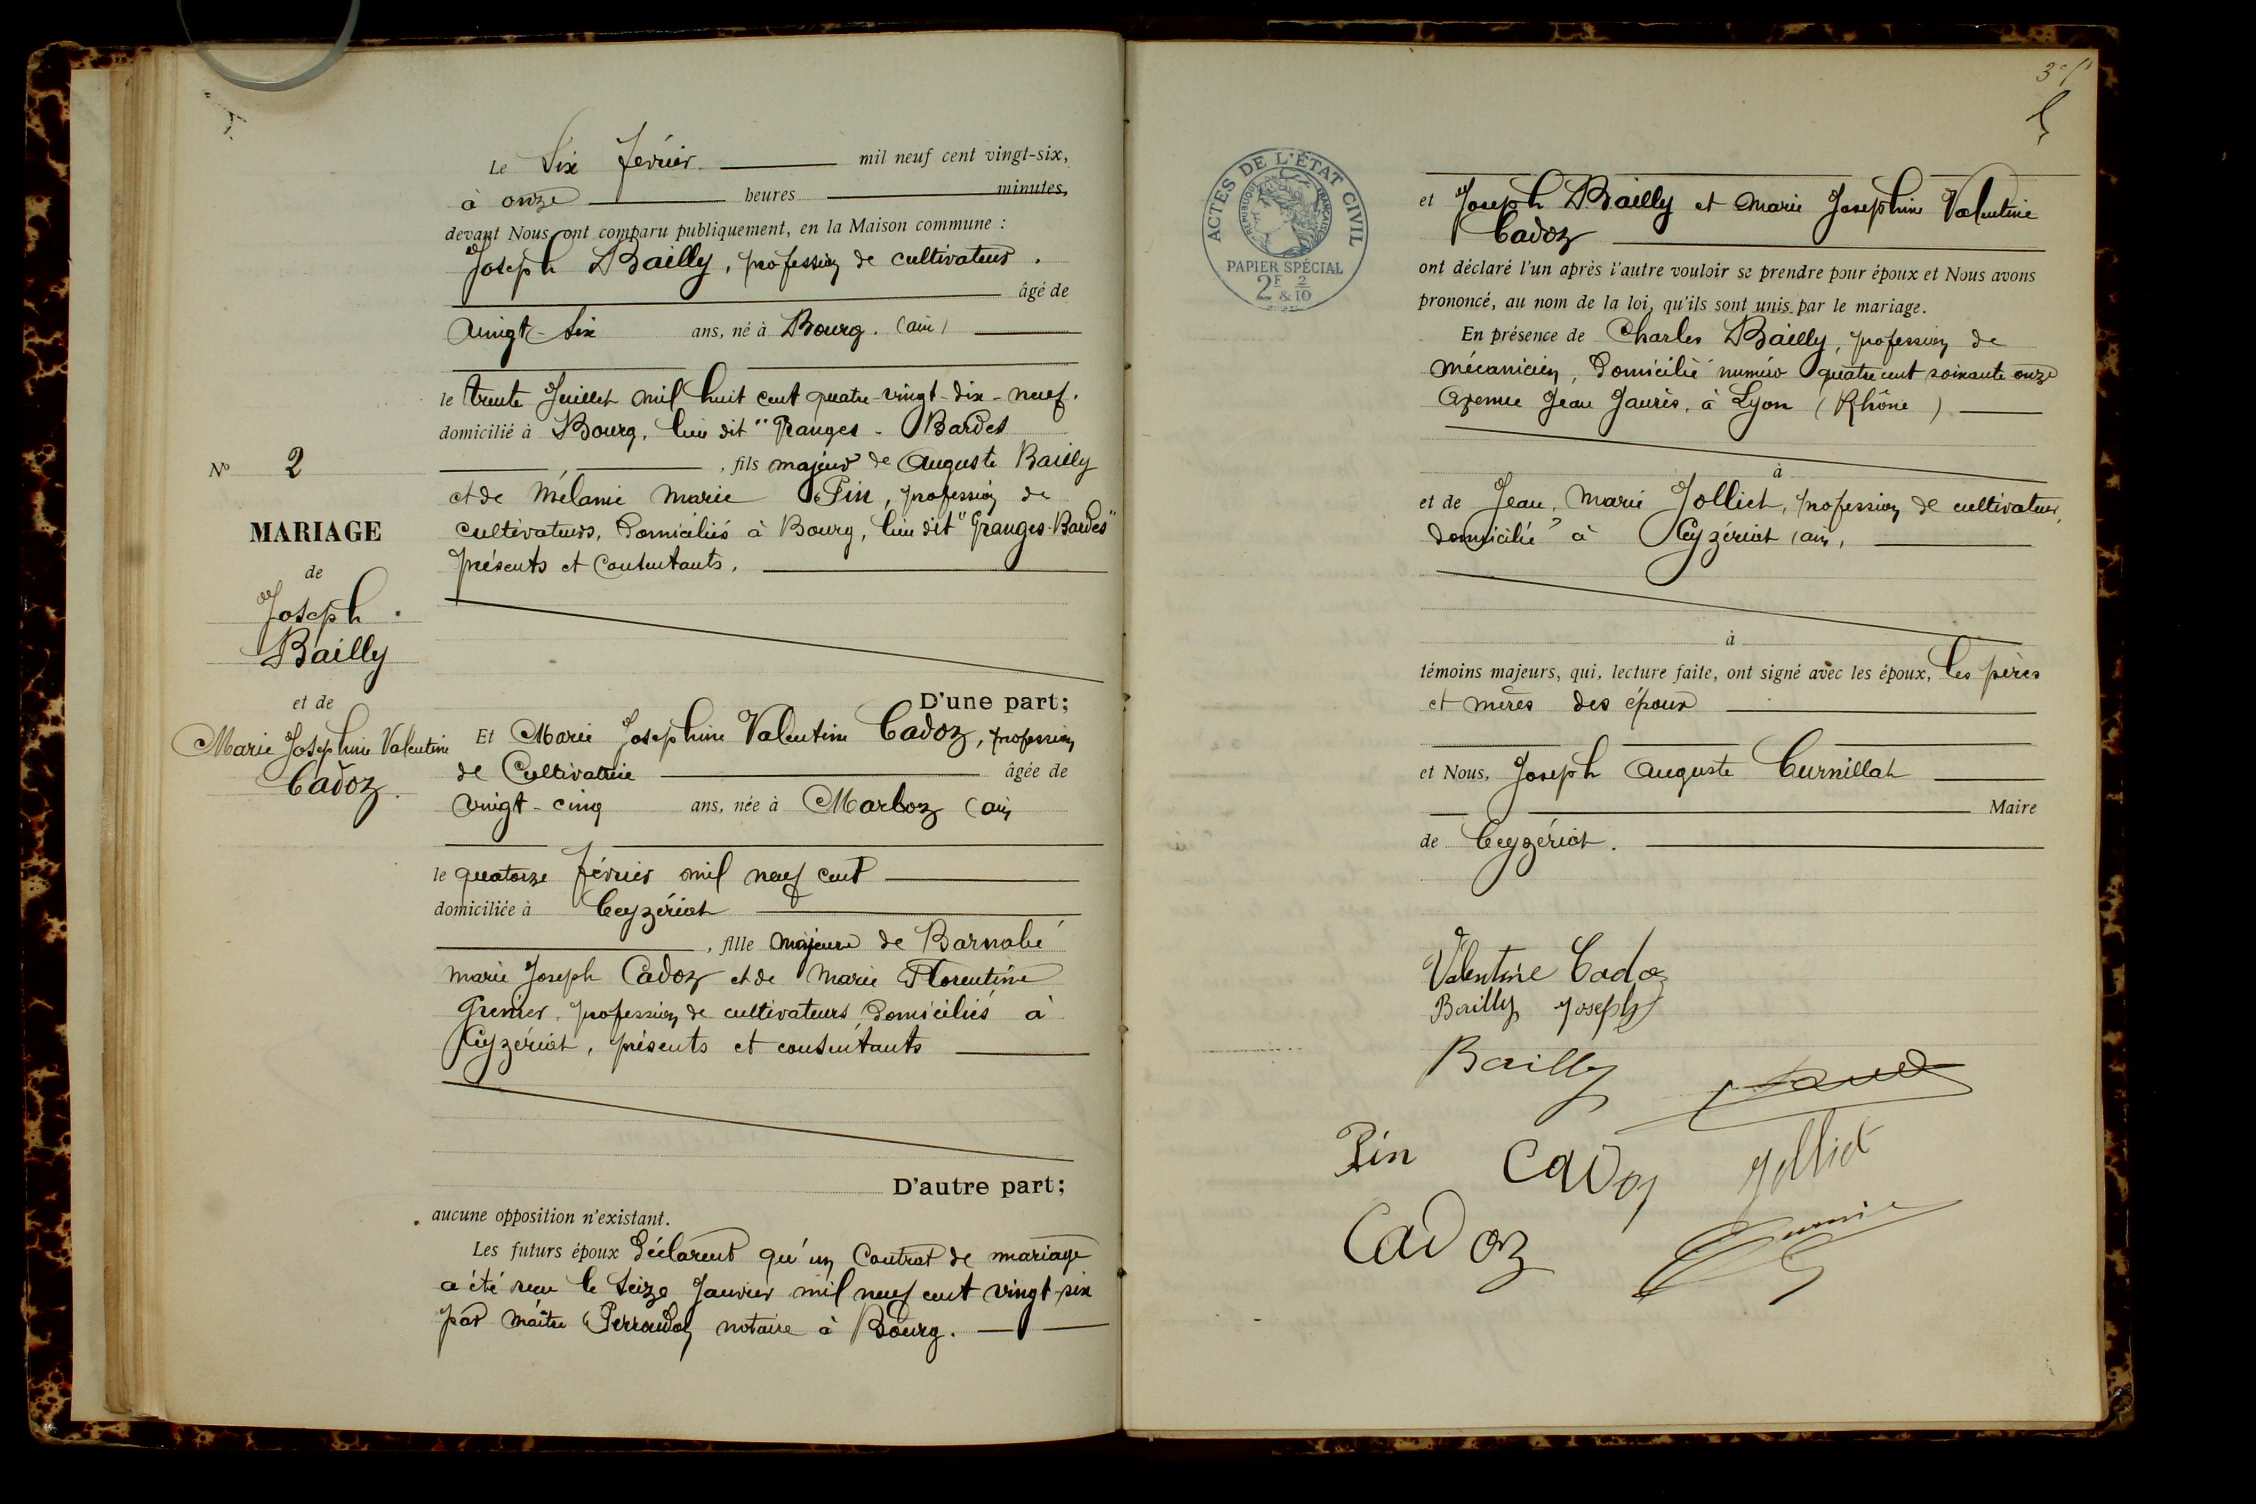 Le Six février mil neuf cent vingt-six,
à onze heures minutes,
devant Nous ont comparu publiquement, en la Maison commune :
Joseph Bailly, profession de cultivateur.
âgé de
vingt-six ans, né à Bourg. (ain)
le trente Juillet mil huit cent quatre-vingt-dix-neuf.
domicilié à Bourg, lieu dit "Granges-Bardes
, fils majeur de Auguste Bailly
et de Mélanie Marie Pin, profession de
cultivateurs, domiciliés à Bourg, lieu dit "Granges-Bardes"
présents et consentants.
D'une part;
N° 2
MARIAGE
de
Joseph
Bailly
et de
Marie Josephine Valentine
Cadoz.
Et Marie Josephine Valentine Cadoz, profession
de Cultivatrice âgée de
vingt-cinq ans, née à Marboz (ain
le quatorze février mil neuf cent
domiciliée à Ceyzériat
, fille majeure de Barnabé
marie Joseph Cadoz et de Marie Florentine
Grenier, profession de cultivateurs, domiciliés à
Ceyzériat, présents et consentants
D'autre part;
aucune opposition n'existant.
Les futurs époux déclarent qu'un Contrat de mariage
a été reçu le seize Janvier mil neuf cent vingt-six
par maître Perroudon notaire à Bourg.
ACTES DE L'ÉTAT CIVIL
RÉPUBLIQUE FRANÇAISE
PAPIER SPÉCIAL
2F & 2/10
et Joseph Bailly et Marie Josephine Valentine
Cadoz
ont déclaré l'un après l'autre vouloir se prendre pour époux et Nous avons
prononcé, au nom de la loi, qu'ils sont unis par le mariage.
En présence de Charles Bailly, profession de
mécanicien, domicilié numéro quatre cent soixante onze
Avenue Jean Jaurès, à Lyon (Rhône)
à
et de Jean, Marie Jolliet, profession de cultivateur,
domicilié à Ceyzériat (ain,
à
témoins majeurs, qui, lecture faite, ont signé avec les époux, les pères
et mères des époux
et Nous, Joseph Auguste Curnillat
Maire
de Ceyzériat.
Valentine Cadoz
Bailly Joseph
Bailly
Pin Cadoz Jolliet
Cadoz